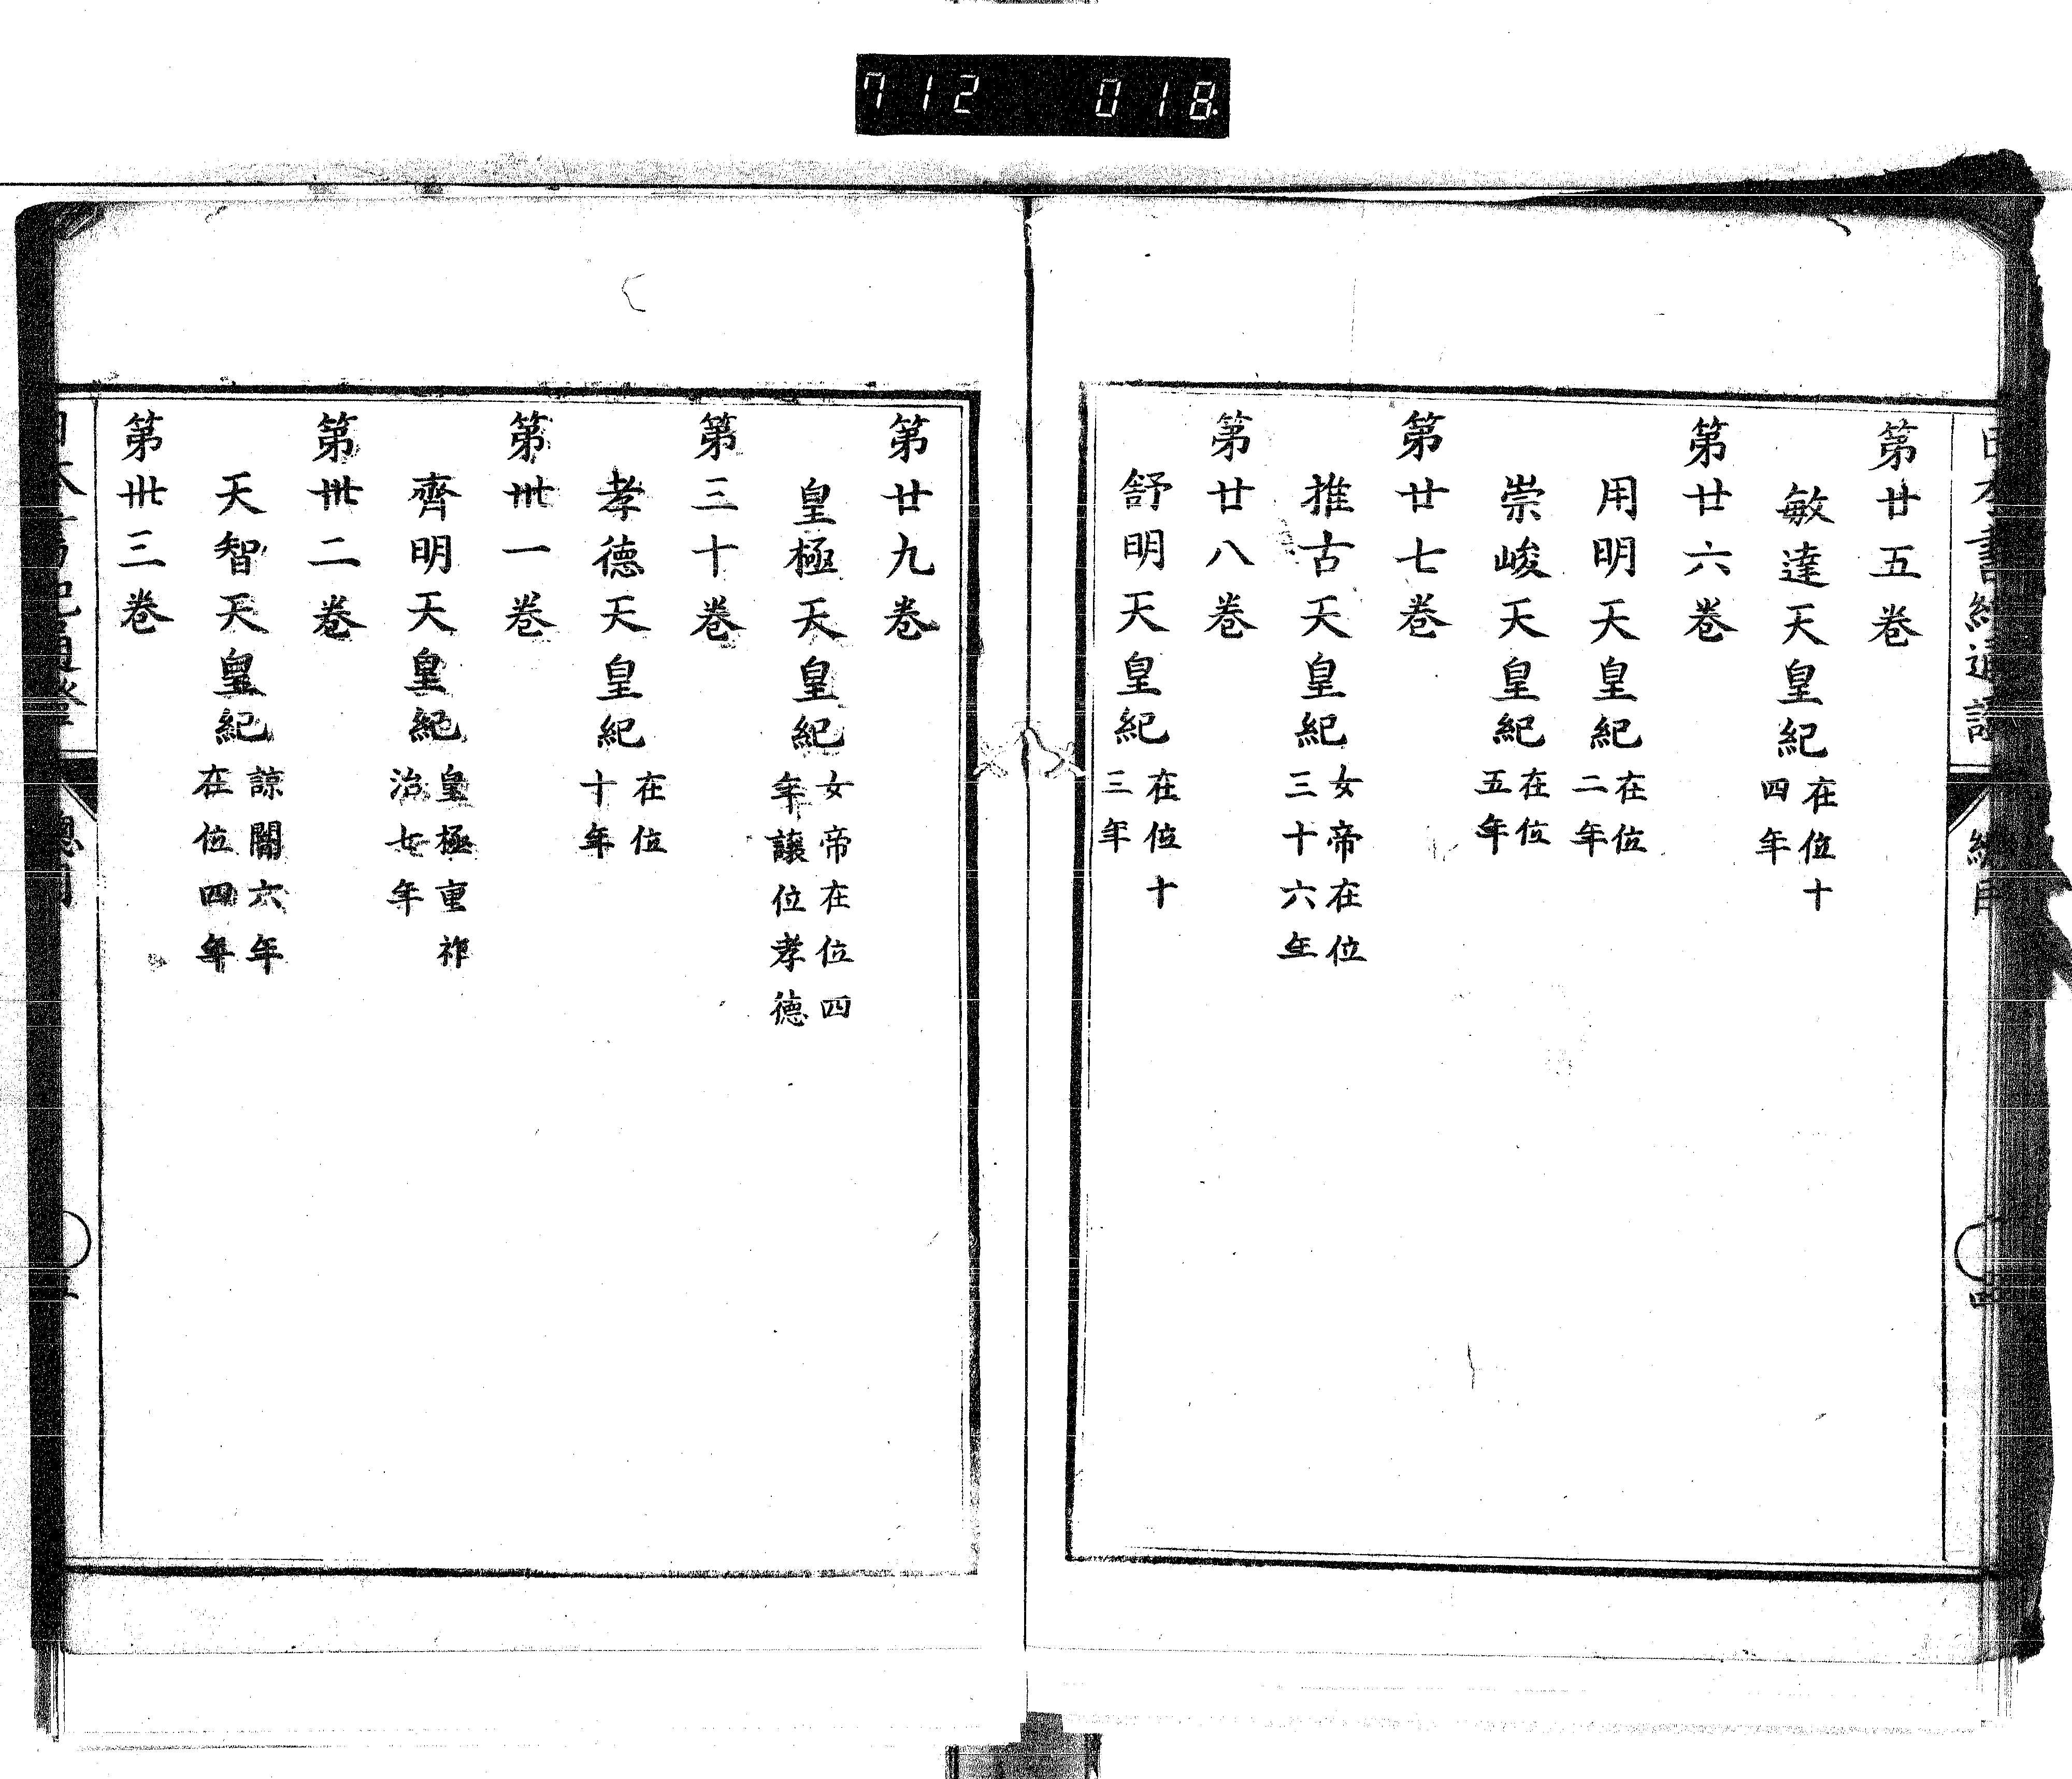 712 018
第廿五巻
敏達天皇紀 在位十四年
第廿六巻
用明天皇紀 在位二年
崇峻天皇紀 在位五年
第廿七巻
推古天皇紀 女帝在位三十六年
第廿八巻
舒明天皇紀 在位十三年
第廿九巻
皇極天皇紀 女帝在位四年讓位孝德
第三十巻
孝德天皇紀 在位十年
第卅一巻
齊明天皇紀 皇極重祚治七年
第卅二巻
天智天皇紀 諒闇六年在位四年
第卅三巻